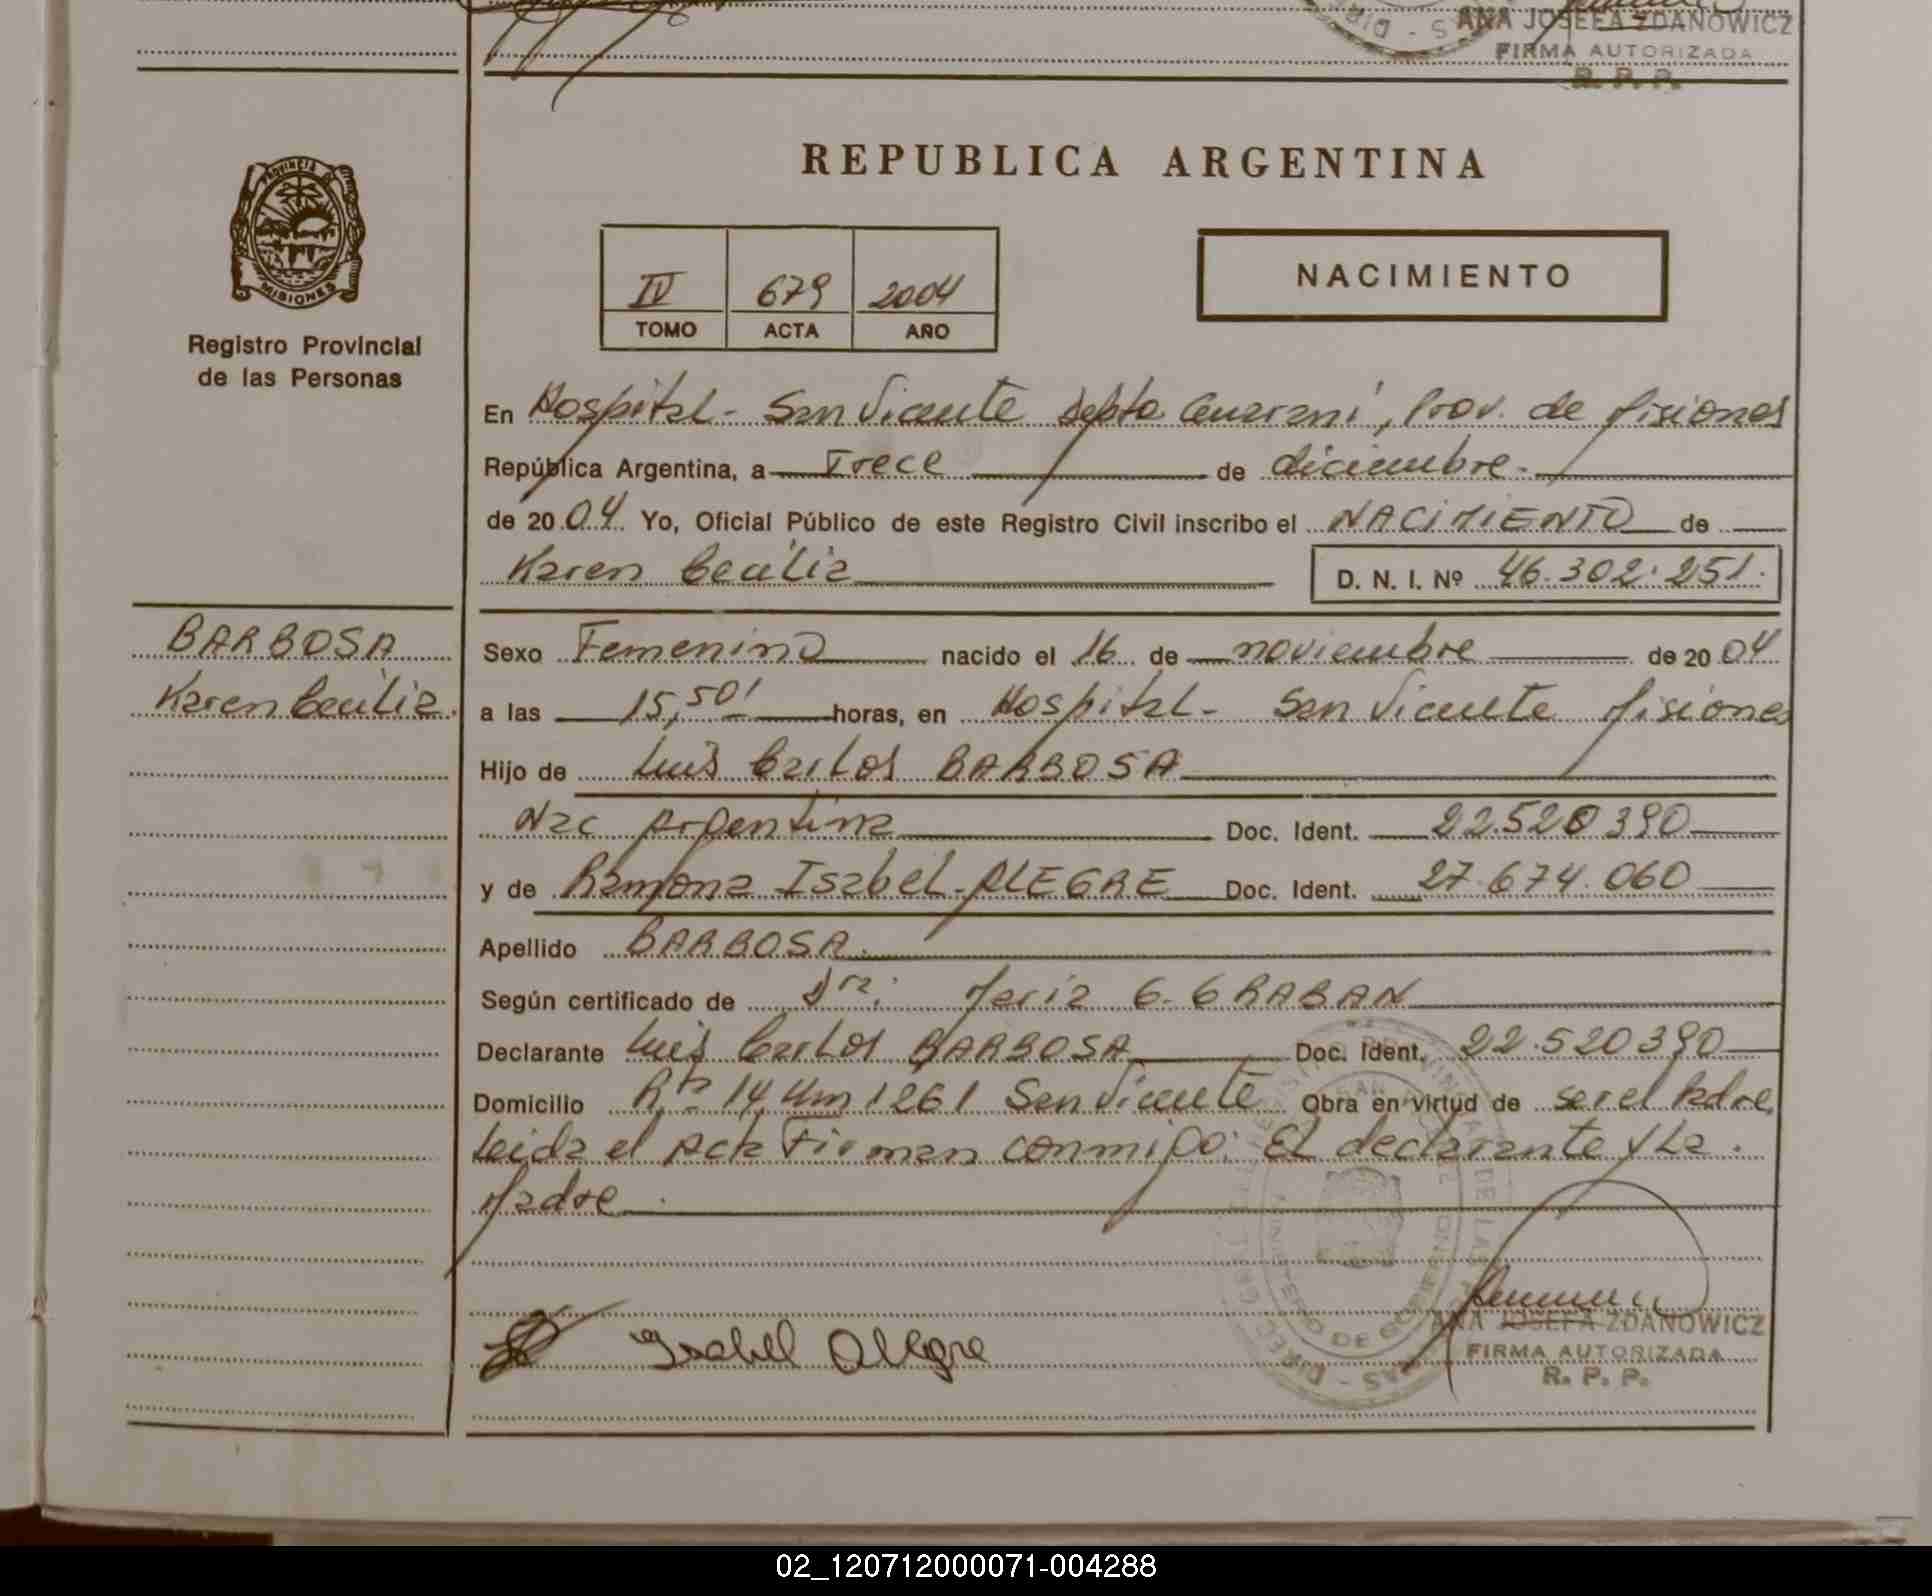 ANA JOSEFA ZDANOWICZ
FIRMA AUTORIZADA
R. P. P.
PROVINCIA DE
MISIONES
Registro Provincial
de las Personas
REPUBLICA ARGENTINA
IV 679 2004
TOMO ACTA AÑO
NACIMIENTO
En Hospital - San Vicente Depto Guarani, Prov. de Misiones
República Argentina, a Trece de diciembre.
de 2004 Yo, Oficial Público de este Registro Civil inscribo el NACIMIENTO de
Karen Cecilia D. N. I. Nº 46.302.251.
BARBOSA
Karen Cecilia.
Sexo Femenino nacido el 16 de noviembre de 2004
a las 15,50' horas, en Hospital - San Vicente Misiones
Hijo de Luis Carlos BARBOSA
Nac Argentina Doc. Ident. 22.520390
y de Ramona Isabel - ALEGRE Doc. Ident. 27.674.060
Apellido BARBOSA.
Según certificado de Dra: Maria G. GRABAN
Declarante Luis Carlos BARBOSA Doc. Ident. 22.520390
Domicilio Rta 14 Km 1261 San Vicente Obra en virtud de ser el Padre,
Leida el Acta Firman conmigo: El declarante y La.
Madre.
Isabel Alegre
ANA JOSEFA ZDANOWICZ
FIRMA AUTORIZADA
R. P. P.
MINISTERIO DE GOBIERNO
02_120712000071-004288